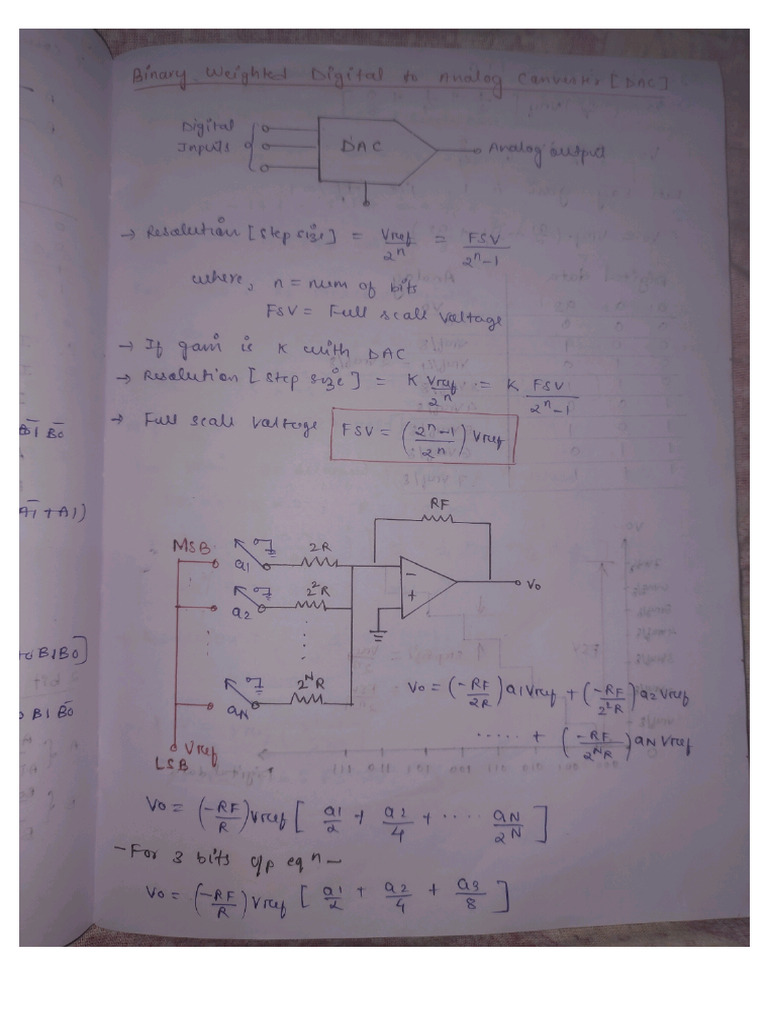 Binary Weighted Digital to Analog Converter [DAC]
Digital Inputs
DAC
Analog output
→ Resolution [step size] = Vref/2ⁿ = FSV/(2ⁿ-1)
where, n = num of bits
FSV = Full scall voltage
→ If gain is K with DAC
→ Resolution [step size] = K Vref/2ⁿ = K FSV/(2ⁿ-1)
→ Full scall voltage FSV = ((2ⁿ-1)/2ⁿ) Vref
RF
MSB
a1
2R
a2
2²R
aN
2ᴺR
-
+
Vo
Vref
LSB
Vo = (-RF/2R) a1 Vref + (-RF/2²R) a2 Vref
..... + (-RF/2ᴺR) aN Vref
Vo = (-RF/R) Vref [ a1/2 + a2/4 + .... aN/2ᴺ ]
- For 3 bits o/p eqn -
Vo = (-RF/R) Vref [ a1/2 + a2/4 + a3/8 ]
B0
A1 + A1)
B1B0]
B1 B0